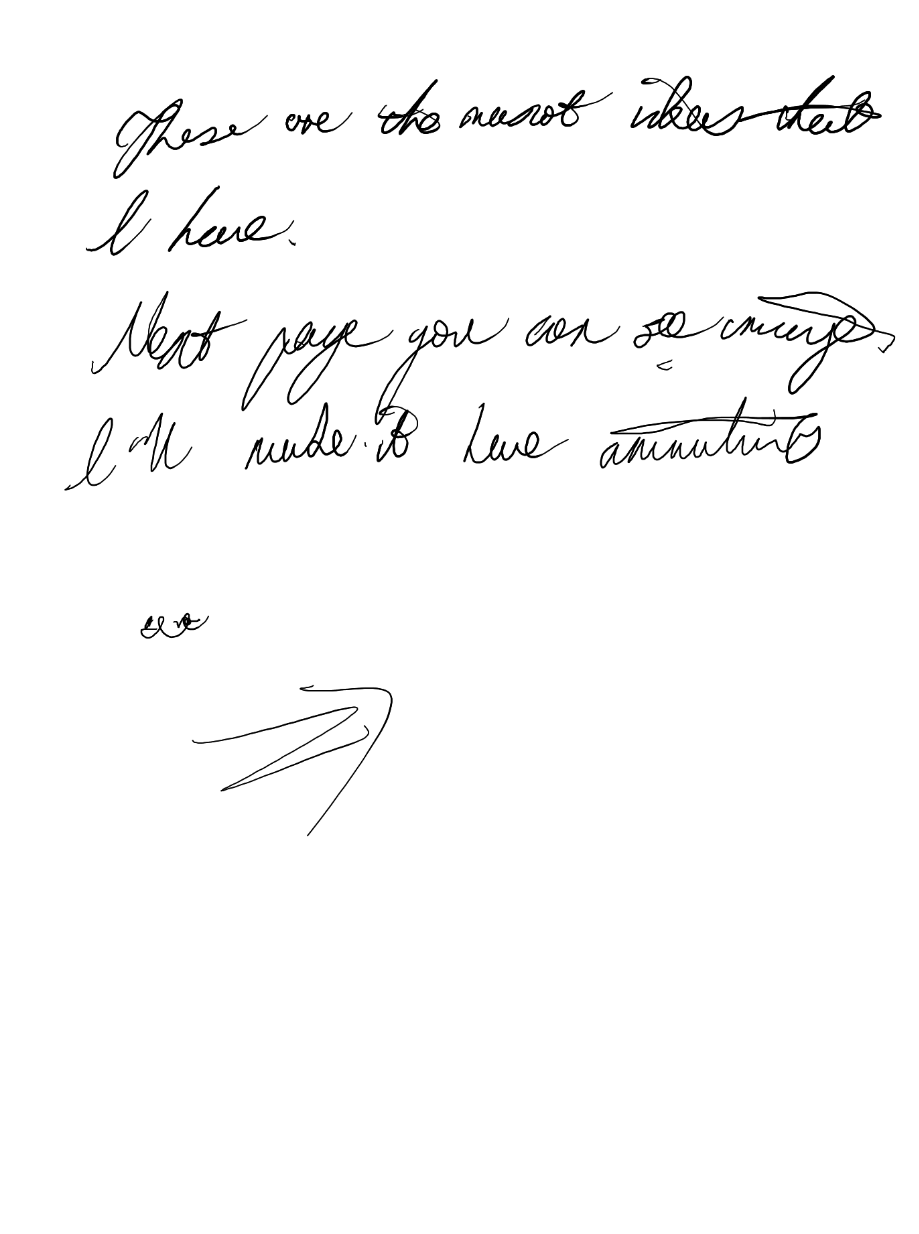 These are the mascot ideas that
I have.
Next page you can see image,
I'll made it have animations